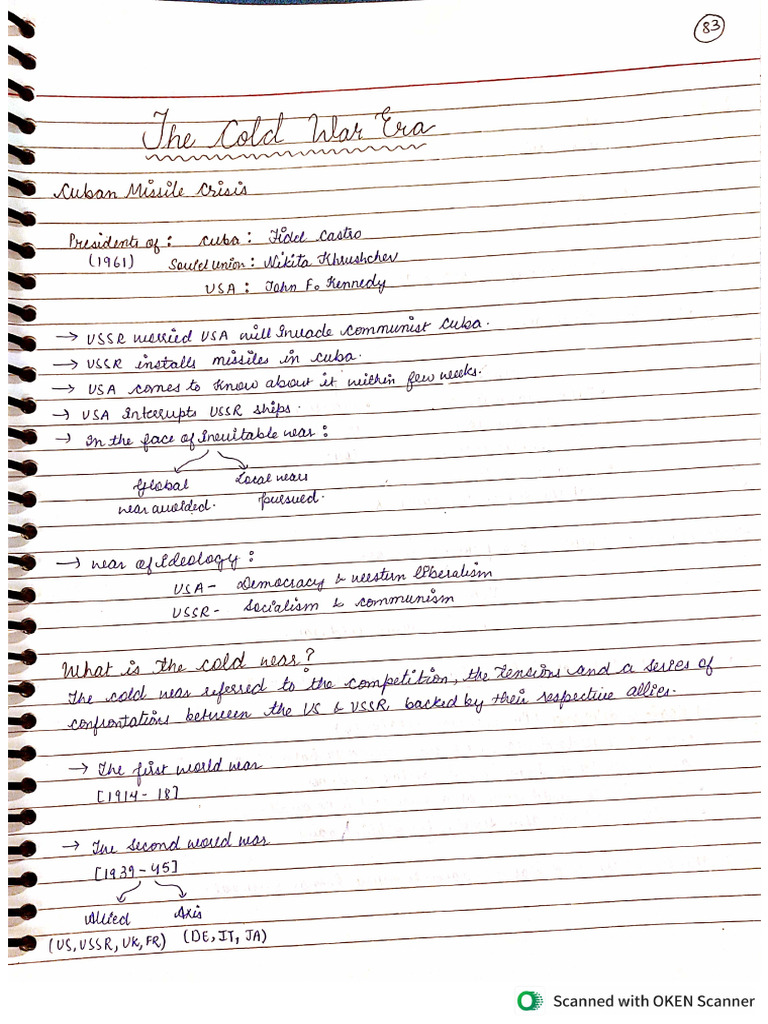 83
The Cold War Era
Cuban Missile Crisis
Presidents of : Cuba : Fidel Castro
(1961) Soviet union : Nikita Khrushchev
USA : John F. Kennedy
→ USSR worried USA will invade communist Cuba.
→ USSR installs missiles in Cuba.
→ USA comes to know about it within few weeks.
→ USA interrupts USSR ships.
→ In the face of inevitable war :
Global Local wars
war avoided. pursued.
→ war of ideology :
USA - Democracy & western liberalism
USSR - Socialism & communism
What is the cold war?
The cold war referred to the competition, the tensions and a series of
confrontations between the US & USSR backed by their respective allies.
→ The first world war
[1914 - 18]
→ The second world war
[1939 - 45]
Allied Axis
(US, USSR, UK, FR) (DE, IT, JA)
Scanned with OKEN Scanner